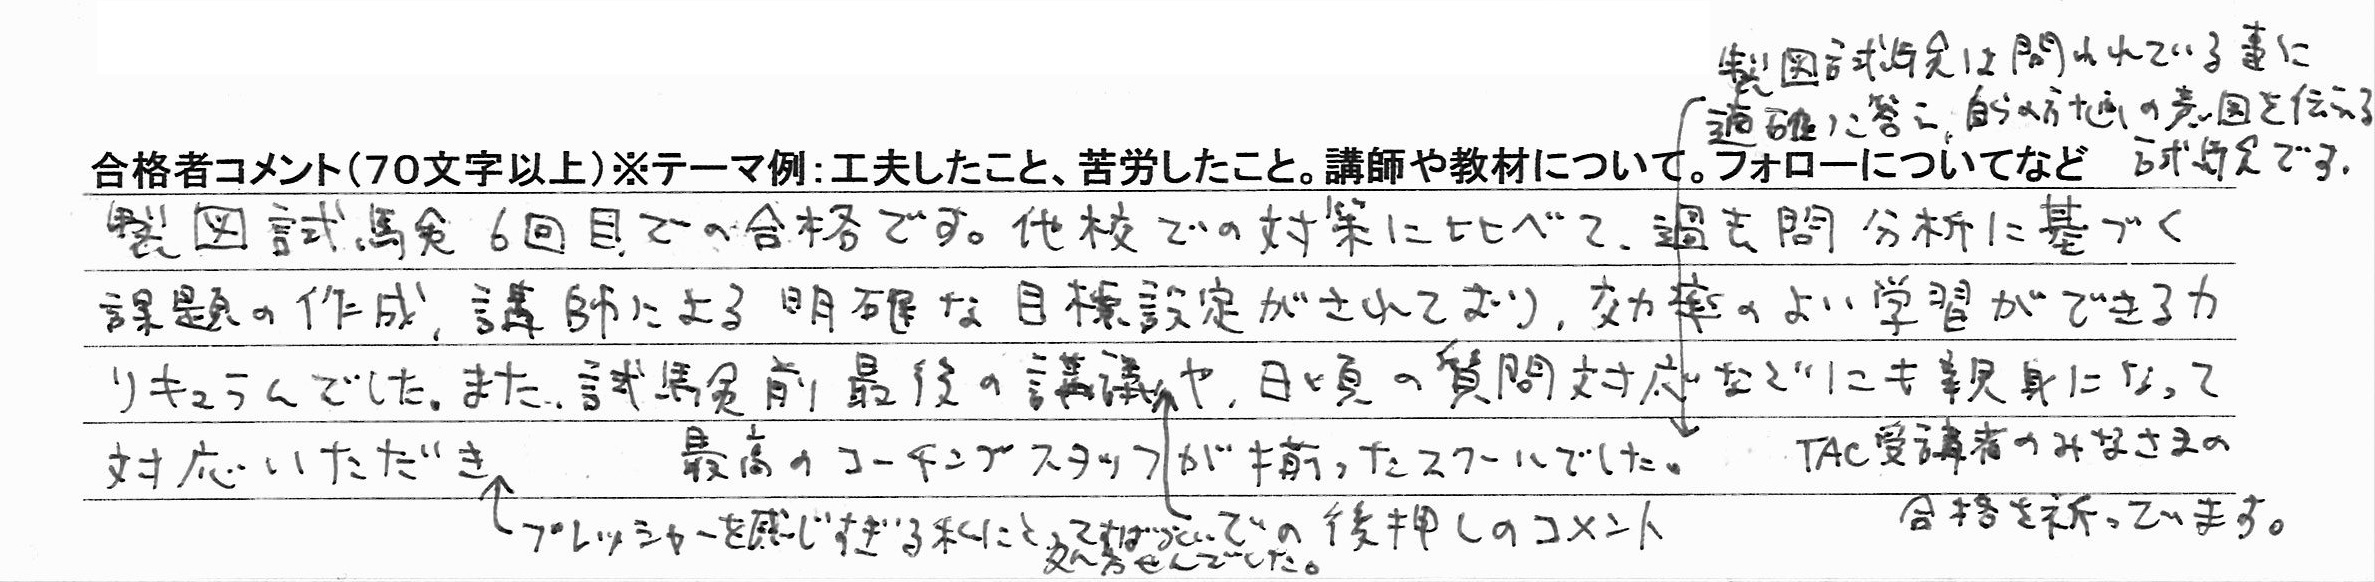 製図試験は問われている事に
適確に答え、自らの方地の意図を伝える
試験です。
合格者コメント(70文字以上)※テーマ例:工夫したこと、苦労したこと。講師や教材について。フォローについてなど
製図試験6回目での合格です。他校での対策に比べて、過去問分析に基づく
課題の作成、講師による明確な目標設定がされており、効率のよい学習ができるカ
リキュラムでした。また、試験前最後の講議や、日頃の質問対応などにも親身になって
対応いただき 最高のコーチングスタッフが揃ったスクールでした。 TAC受講者のみなさまの
合格を祈っています。
プレッシャーを感じすぎる私にとって での後押しのコメント
せんでした。